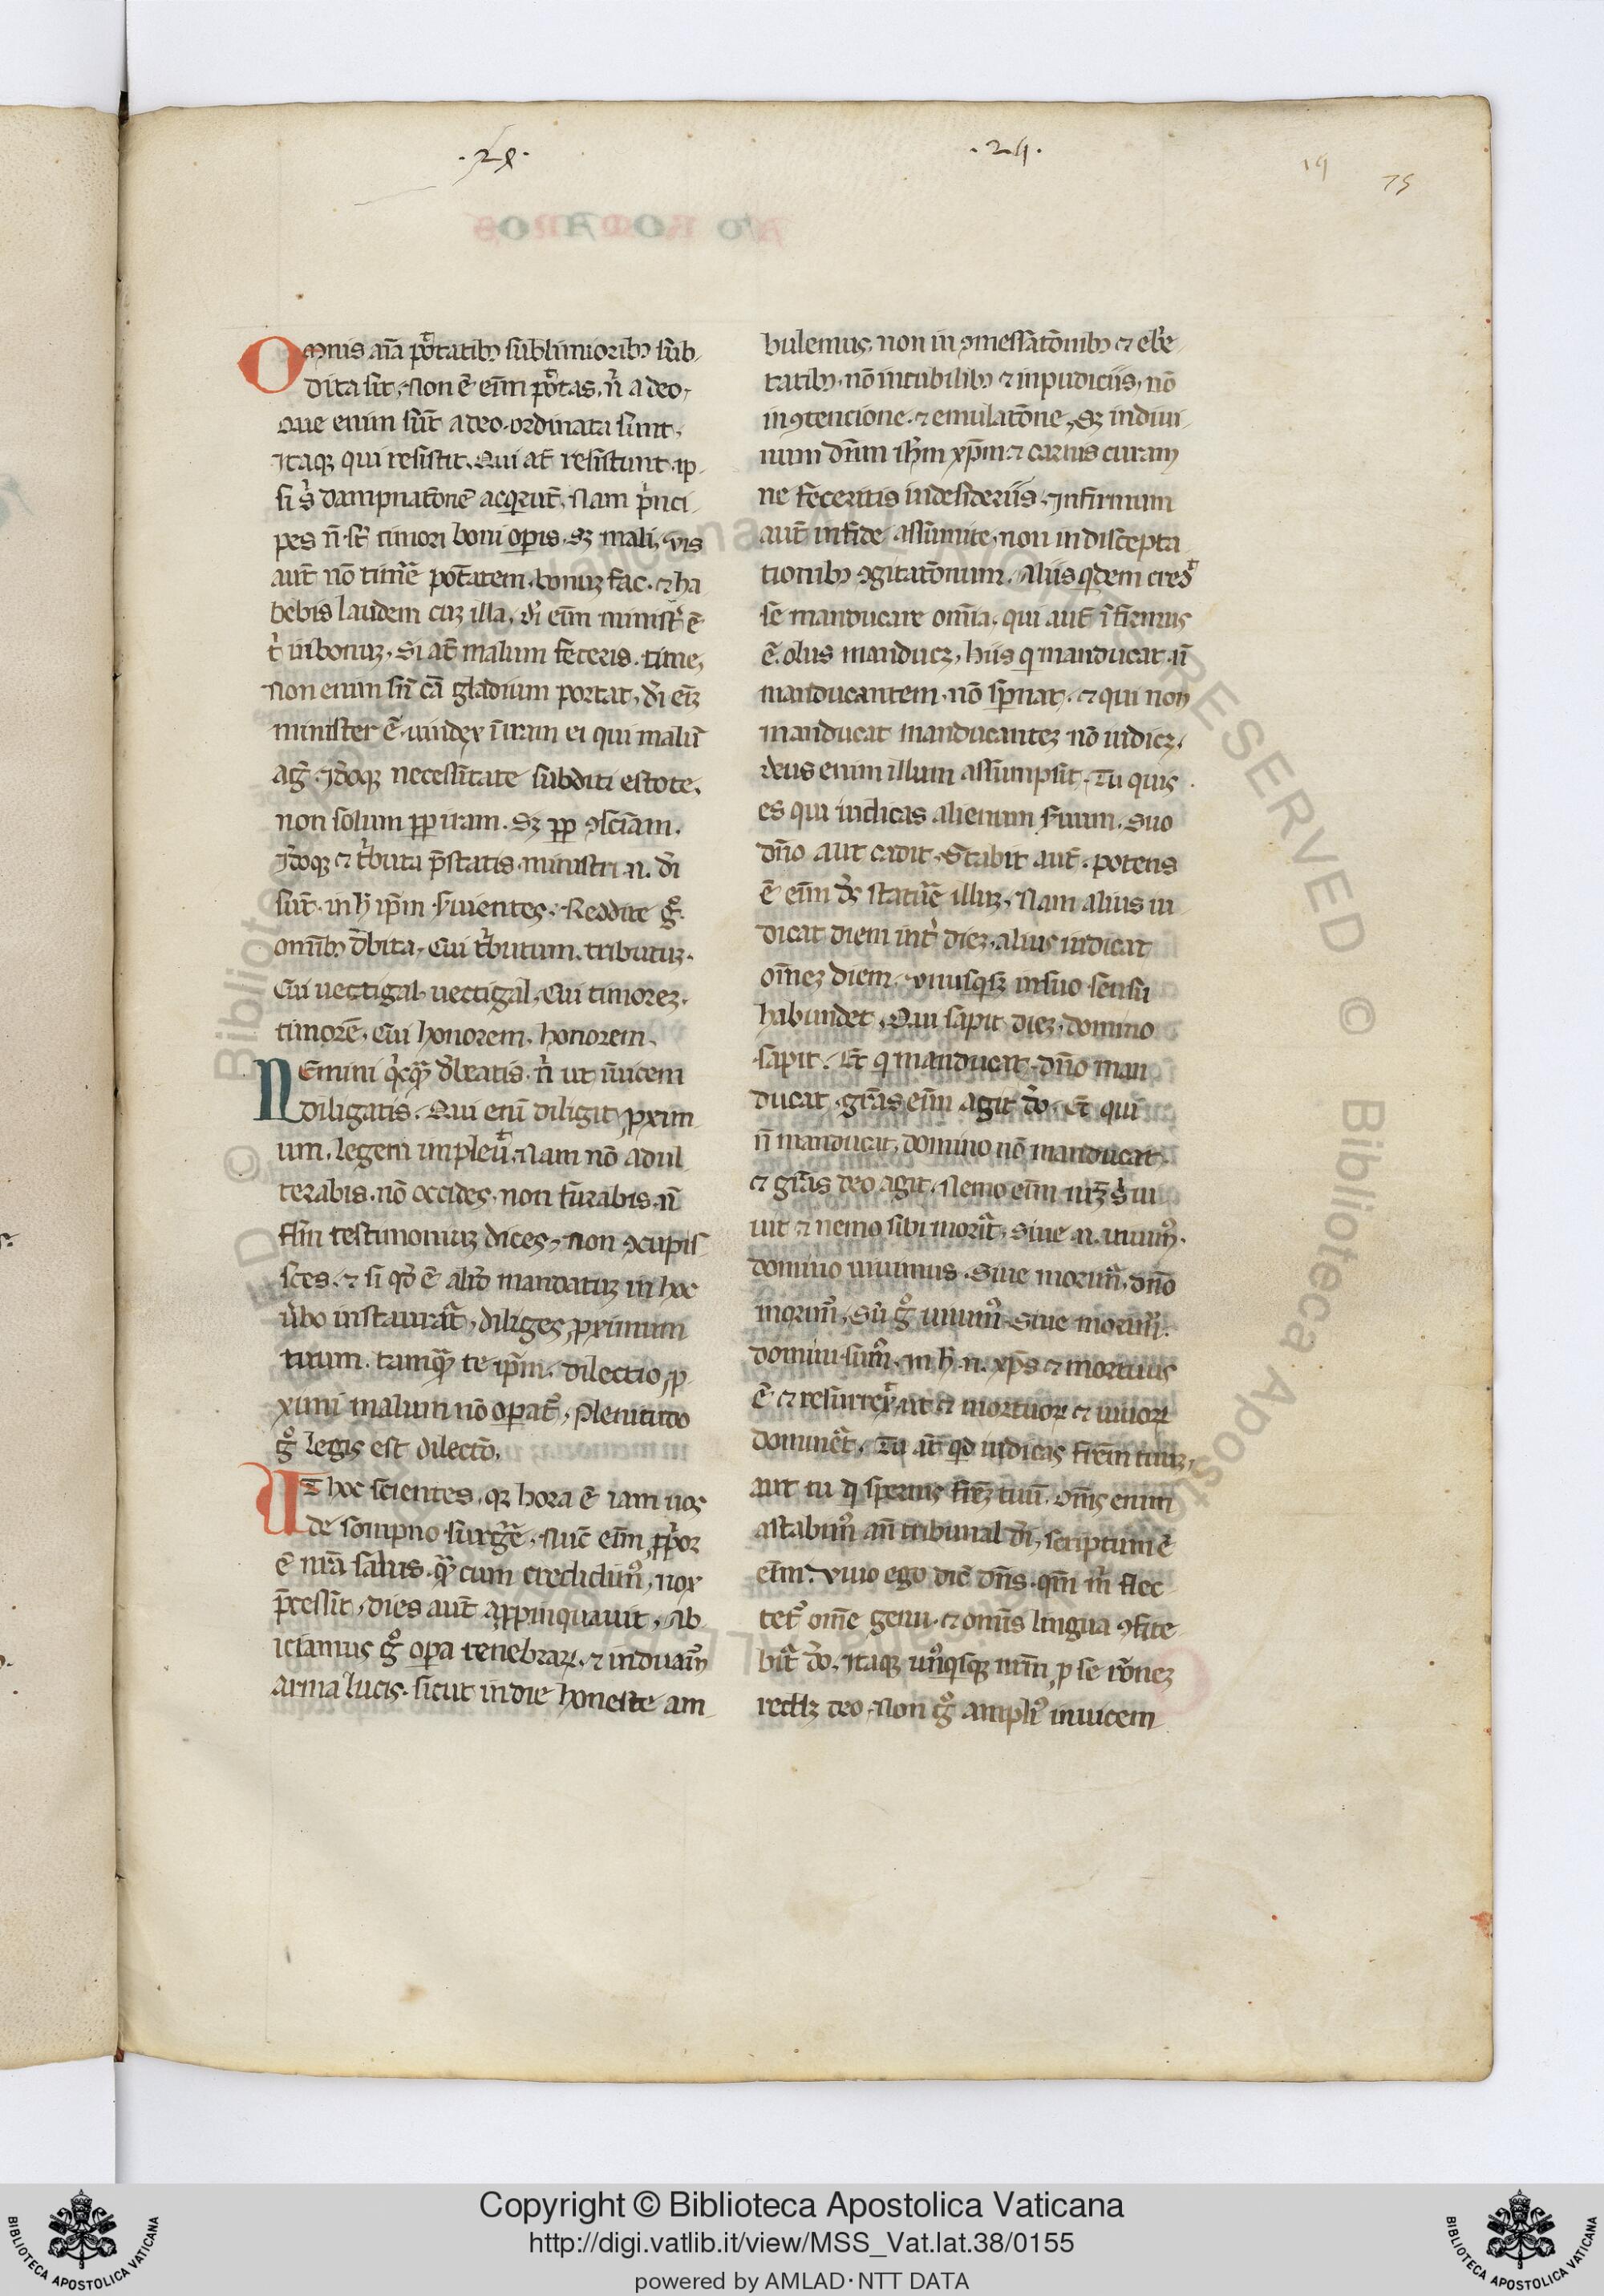 .28.
.24.
19
75
Omnis aīa potatibȝ sublimioribȝ sub
dita sit. Non ē eīm ptas. nī a deo.
que enim sūt a deo. ordinata sunt.
Itaqȝ qui resistit. Qui at̄ resistunt. ip
si s dampnatōnē acqrūt. Nam p̄nci
pes n̄ st̄ timori boni opis. sȝ mali. vis
aut̄ nō timē potatem. bonuȝ fac. ⁊ ha
bebis laudem cuȝ illa. dī eīm minist ē
t̄ in bonuȝ. Si at̄ malum feceris. time.
Non enim sn̄ cā gladium portat. dī eiȝ
minister ē. uindex ī iram ei qui malū
aḡ. Idoqȝ necessitate subditi estote.
non solum pp iram. Sȝ pp ꝯsciam.
Idoqȝ ⁊ tbuta p̄statis. ministri .n. dī
sūt. in h ipm seruientes. Reddite g̊
omībȝ debita. Cui tbutum. tributuȝ.
Cui uectigal. uectigal. Cui timoreȝ.
timorē. Cui honorem. honorem.
Nemini qcqȝ debeatis. nī ut īuicem
diligatis. Qui enī diligit ꝓxim
um. legem impleū. Nam nō adul
terabis. nō occides. non furabis. n̄
flm testimoniuȝ dices. Non ꝯcupis
sces. ⁊ si qd ē aliđ mandatuȝ in hoc
ūbo instaurāt. diliges ꝓximum
tuum. tamqȝ te ipm. dilectio ꝓ
ximi malum nō opat. Plenitudo
g̊ legis est dilectō.
Et hoc scientes. qȝ hora ē iam nos
de sompno surgē. Nūc eīm ꝓpior
ē nrā salus. qȝ cum credidimꝰ. nox
p̄cessit. dies aut̄ appinquauit. Ab
iciamus g̊ opa tenebraꝝ. ⁊ induamꝰ
arma lucis. sicut in die honeste am
bulemus. non in ꝯmessatōnibȝ ⁊ ebie
tatibȝ. nō in cubilibȝ ⁊ inpudiciis. nō
in ꝯtencione. ⁊ emulatōne. Sȝ indui
mini dn̄m ihm xpm. ⁊ carnis curam
ne feceritis in desideriis. Infirmum
aut̄ in fide assumite. non in discepta
tionibȝ ꝯgitatōnum. Alius qdem cred
se manducare omīa. qui aut̄ īfirmus
ē. olus manducȝ. hiis q manducat. n̄
manducantem. nō spnat. ⁊ qui non
manducat manducanteȝ nō iudicȝ.
deus enim illum assumpsit. Tu quis
es qui iudicas alienum seruum. Suo
dn̄o aut cadit. Stabit aut̄. potens
ē eīm ds statuē illuȝ. Nam alius iu
dicat diem int dieȝ. alius iudicat
om̄eȝ diem. vnusqsqȝ in suo sensu
habundet. Qui sapit dieȝ. domino
sapit. Et q manducat. dn̄o man
ducat. grās eīm agit do. Et qui
n̄ manducat. domino nō manducat.
⁊ grās deo agit. Nemo eīm nrȝ s ui
uit ⁊ nemo sibi morit. Siue .n. uiuimꝰ.
domino uiuimus. Siue morimꝰ. dn̄o
morimꝰ. Siu g̊ uiuimꝰ. siue morimꝰ.
domini sumꝰ. in h .n. xps ⁊ mortuus
ē ⁊ resurrex. ut ⁊ mortuoꝝ ⁊ uiuoꝝ
dominet. Tu at̄ qd iudicas frēm tuuȝ.
aut tu q spernis freȝ tuū. Om̄s enim
astabimꝰ an̄ tribunal dī. scriptum ē
eīm. Viuo ego dic̄ dn̄s. qm̄ m̄ flec
tet om̄e genu. ⁊ omīs lingua ꝯfite
bit do. Itaqȝ unꝰqsqȝ nrm̄ ꝓ se rōneȝ
reddȝ deo. Non g̊ ampliꝰ inuicem
Copyright © Biblioteca Apostolica Vaticana
http://digi.vatlib.it/view/MSS_Vat.lat.38/0155
powered by AMLAD·NTT DATA
BIBLIOTECA APOSTOLICA VATICANA
BIBLIOTECA APOSTOLICA VATICANA